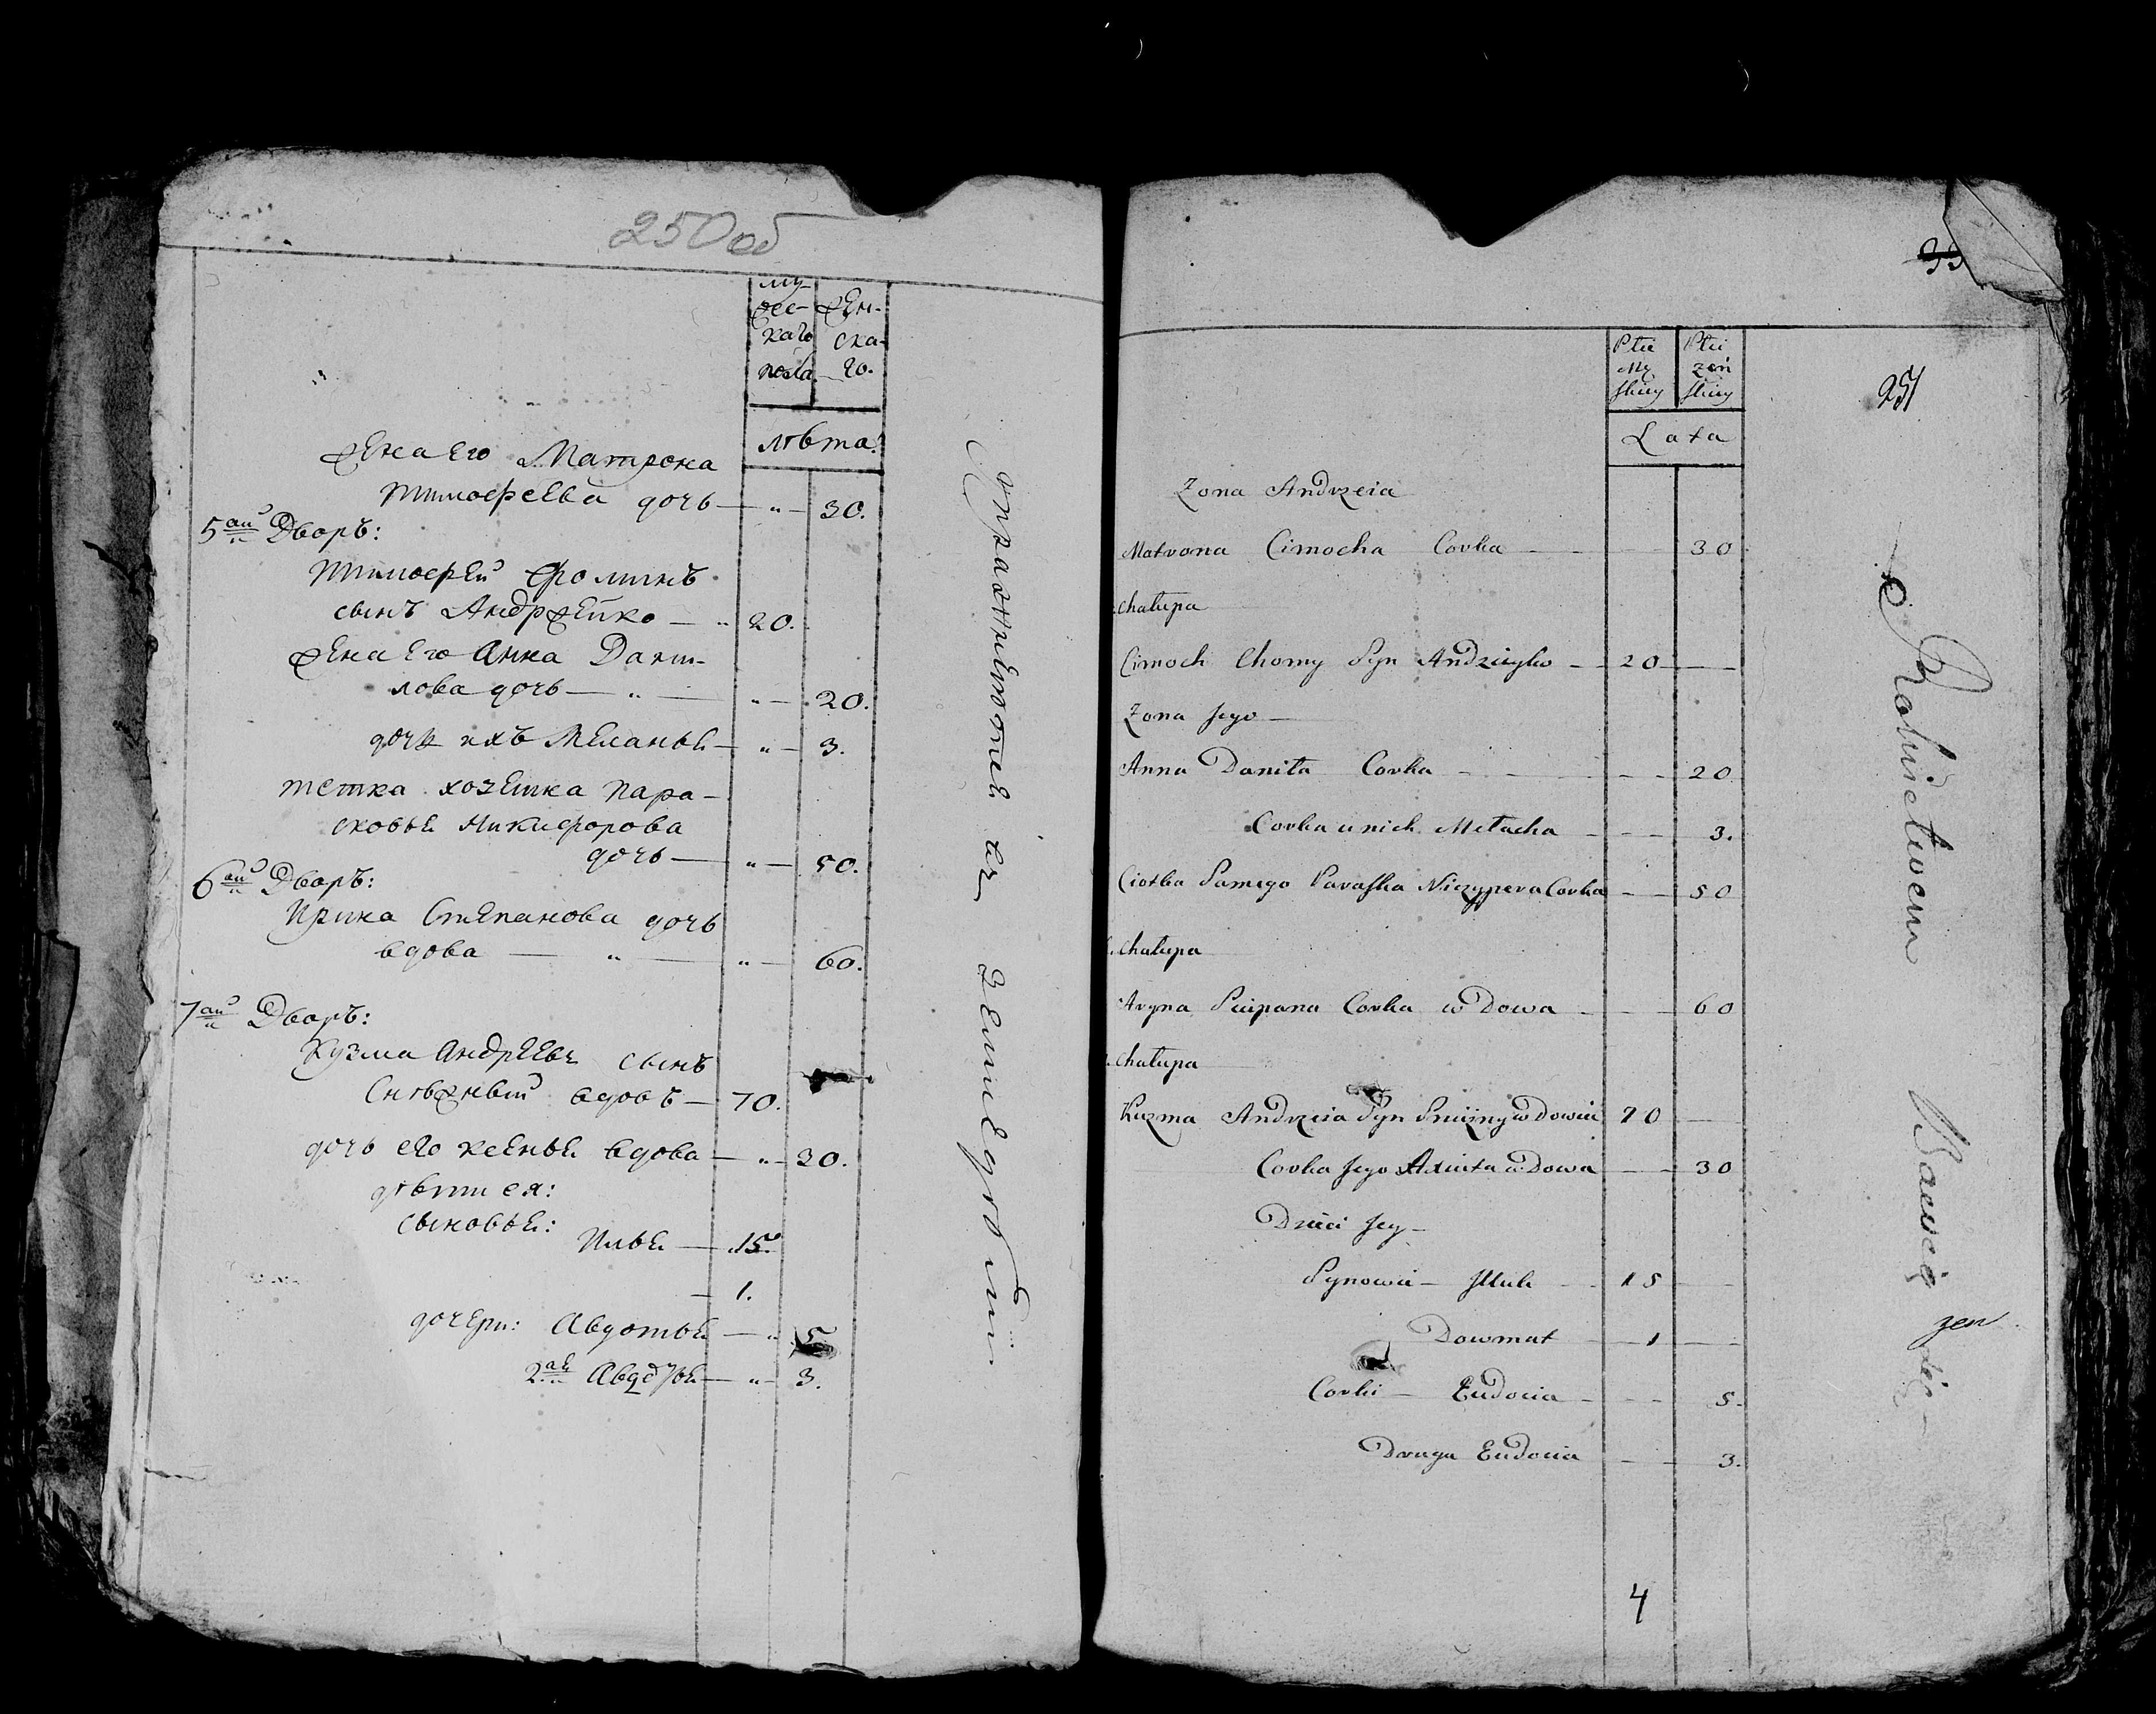 250 об
му-
жес-
каго
пола
жен-
ска-
го.
лѣта:
Жена Его Матрона
тимофеева дочь — „ — 30.
5ай Дворъ:
тимофей Фоминъ
сынъ Андржейко — „ 20.
Жена Его Анна Дани-
лова дочь — „ — „ — 20.
дочь ихъ Меланья — „ — 3.
тетка хозеина пара-
сковья Никифорова
дочь — „ — 50.
6ай Дворъ:
Ирина Степанова дочь
вдова — „ — „ — 60.
7ай Дворъ:
Кузма Андреевъ сынъ
Снѣжный вдовъ — 70.
дочь его ксенья вдова — „ — 30.
дѣти ея:
сыновья:
Илья — 15.
— 1.
дочери: Авдотья — „ 5
2ая Авдотья — „ — 3.
упражняютъся въ земледѣлии
251
Płci
Mę
skiey
Płci
żeń
skiey
Lata
Zona Andrzeia
Matrona Cimocha Corka — — 30
chałupa
Cimoch Chomy Syn Andrzeyko — 20 —
Zona Jego —
Anna Daniła Corka — — 20
Corka u nich Mełacha — — 3.
Ciotka Samego Paraska Niczypera Corka — — 50
chałupa
Aryna Sciepana Corka wDowa — — 60
chałupa
Kuzma Andrzeia Syn Snieżny wDowiec 70 —
Corka Jego Axinia wDowa — — 30
Dzieci Jey —
Synowie — Illia — 15 —
Dowmat — 1 —
Corki — Eudocia — — 5.
Druga Eudocia — — 3.
4
Rolnictwem Bawią
się —